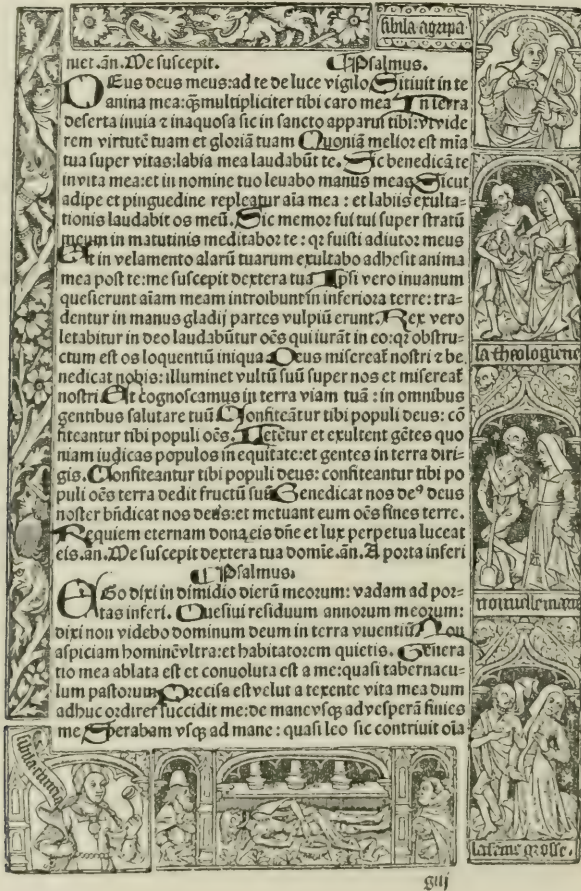 sibila agripa
niet.añ.Me suscepit. Psalmus.
DEus deus meus:ad te de luce vigilo Sitiuit in te
anina mea:q̃3multipliciter tibi caro mea In terra
deserta inuia ⁊ inaquosa sic in sancto apparui tibi:vt vide
rem virtutē tuam et gloriā tuam Quoniā melior est mīa
tua super vitas:labia mea laudabūt te. Sic benedicā te
in vita mea:et in nomine tuo leuabo manus meas Sicut
adipe et pinguedine repleatur aīa mea : et labiis exulta-
tionis laudabit os meū. Sic memor fui tui super stratū
meum in matutinis meditabor te : qr fuisti adiutor meus
Et in velamento alarū tuarum exultabo adhesit anima
mea post te:me suscepit dextera tua Ipsi vero in uanum
quesierunt aīam meam introibunt in inferiora terre: tra-
dentur in manus gladij partes vulpiū erunt. Rex vero
letabitur in deo laudabūtur oēs qui iurāt in eo:qr obstru-
ctum est os loquentiū iniqua Deus misereat̄ nostri ⁊ be
nedicat nobis: illuminet vultū suū super nos et misereat̄
nostri Et cognoscamus in terra viam tuā : in omnibus
gentibus salutare tuū Confiteātur tibi populi deus: cō
fiteantur tibi populi oēs. Letētur et exultent gētes quo
niam iudicas populos in equitate:et gentes in terra diri-
gis. Confiteantur tibi populi deus: confiteantur tibi po
puli oēs terra dedit fructū suū Benedicat nos deꝰ deus
noster bñdicat nos deus:et metuant eum oēs fines terre.
Requiem eternam dona eis dñe et lux perpetua luceat
eis.an. Me suscepit dextera tua domīe.añ. A porta inferi
Psalmus.
EGo dixi in dimidio dierū meorum: vadam ad por-
tas inferi. Quesiui residuum annorum meorum:
dixi non videbo dominum deum in terra viuentiū Non
aspiciam hominē vltra:et habitatorem quietis. Genera
tio mea ablata est et conuoluta est a me:quasi tabernacu-
lum pastorum Precisa est velut a texente vita mea dum
adhuc ordirer succidit me:de mane vsq3 ad vesperā finies
me Sperabam vsq3 ad mane : quasi leo sic contriuit oīa
la theologiēne
la fēme grosse.
giij